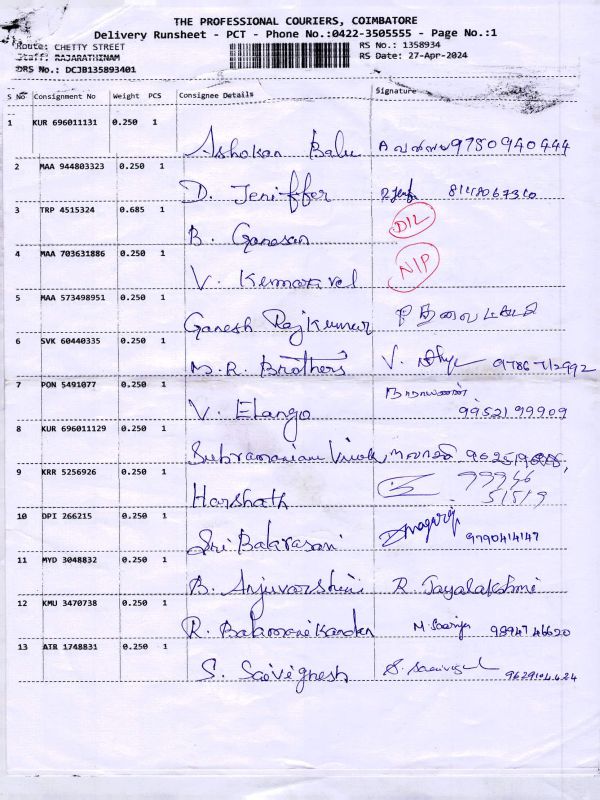 THE PROFESSIONAL COURIERS, COIMBATORE
Delivery Runsheet - PCT - Phone No.:0422-3505555 - Page No.:1
Route: CHETTY STREET
Staff: RAJARATHINAM
DRS No.: DCJB135893401
RS No.: 1358934
RS Date: 27-Apr-2024
S No Consignment No Weight PCS Consignee Details Signature
1 KUR 696011131 0.250 1 Ashokan Balu 9780940444
2 MAA 944803323 0.250 1 D. Jeniffer
3 TRP 4515324 0.685 1 B. Ganesan D/L
4 MAA 703631886 0.250 1 V. Kumaravel N/P
5 MAA 573498951 0.250 1 Ganesh Raj Kumar
6 SVK 60440335 0.250 1 M.R. Brothers V.
7 PON 5491077 0.250 1 V. Elango நாராயணன் 9952199909
8 KUR 696011129 0.250 1 Subramanian
9 KRR 5256926 0.250 1 Harshath 99946 51519
10 DPI 266215 0.250 1 Sri Balarasani 9790414147
11 MYD 3048832 0.250 1 B. Anjuvarshini R. Jayalakshmi
12 KMU 3470738 0.250 1 R. Balamanikandan M. 9894746620
13 ATR 1748831 0.250 1 S. Saivignesh S. 9629104624